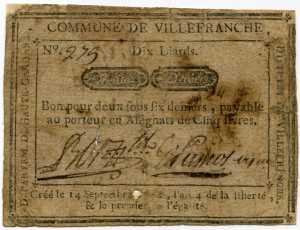 COMMUNE DE VILLEFRANCHE
No. 275 Dix Liards.
Bon pour deux sous six deniers, payable
au porteur en Assignats de Cinq livres.
Créé le 14 Septembre l'an 4 de la liberté,
& le premier de l'égalité.
DÉPARTEM. DE HAUTE-GARONNE
DISTRICT DE VILLEFRANCHE